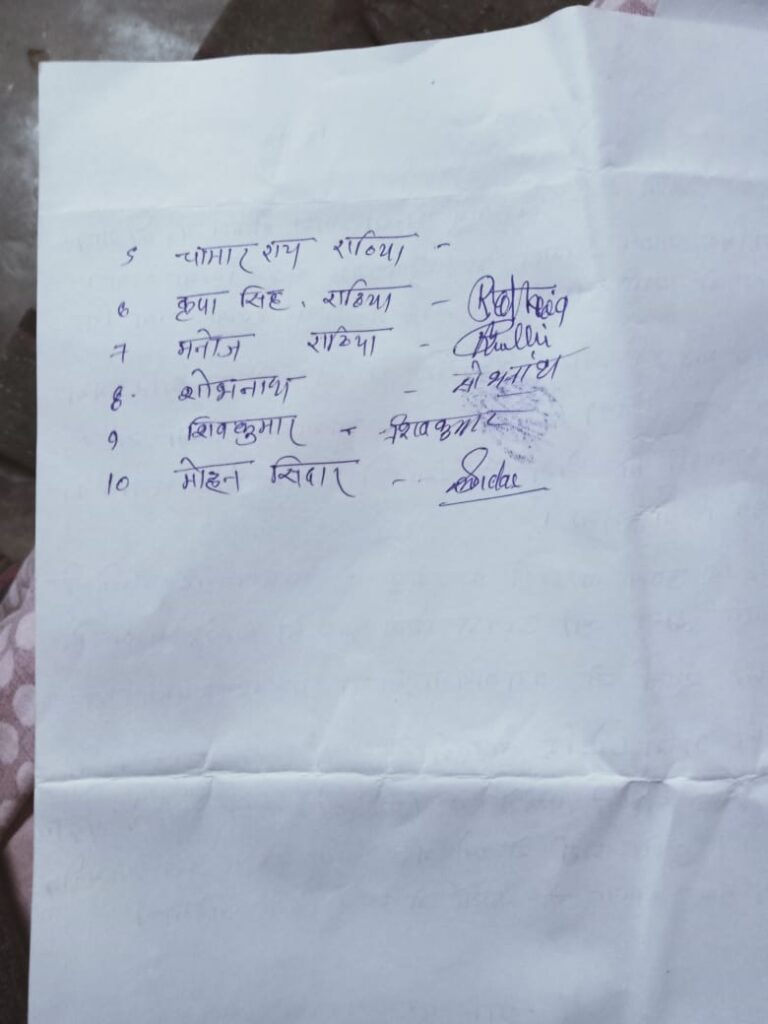 5 चामार राय राठिया -
6 कृपा सिंह . राठिया -
7 मनोज राठिया -
8. शोभनाथ - शोभनाथ
9 शिवकुमार - शिवकुमार
10 मोहन सिदार -- Sidar